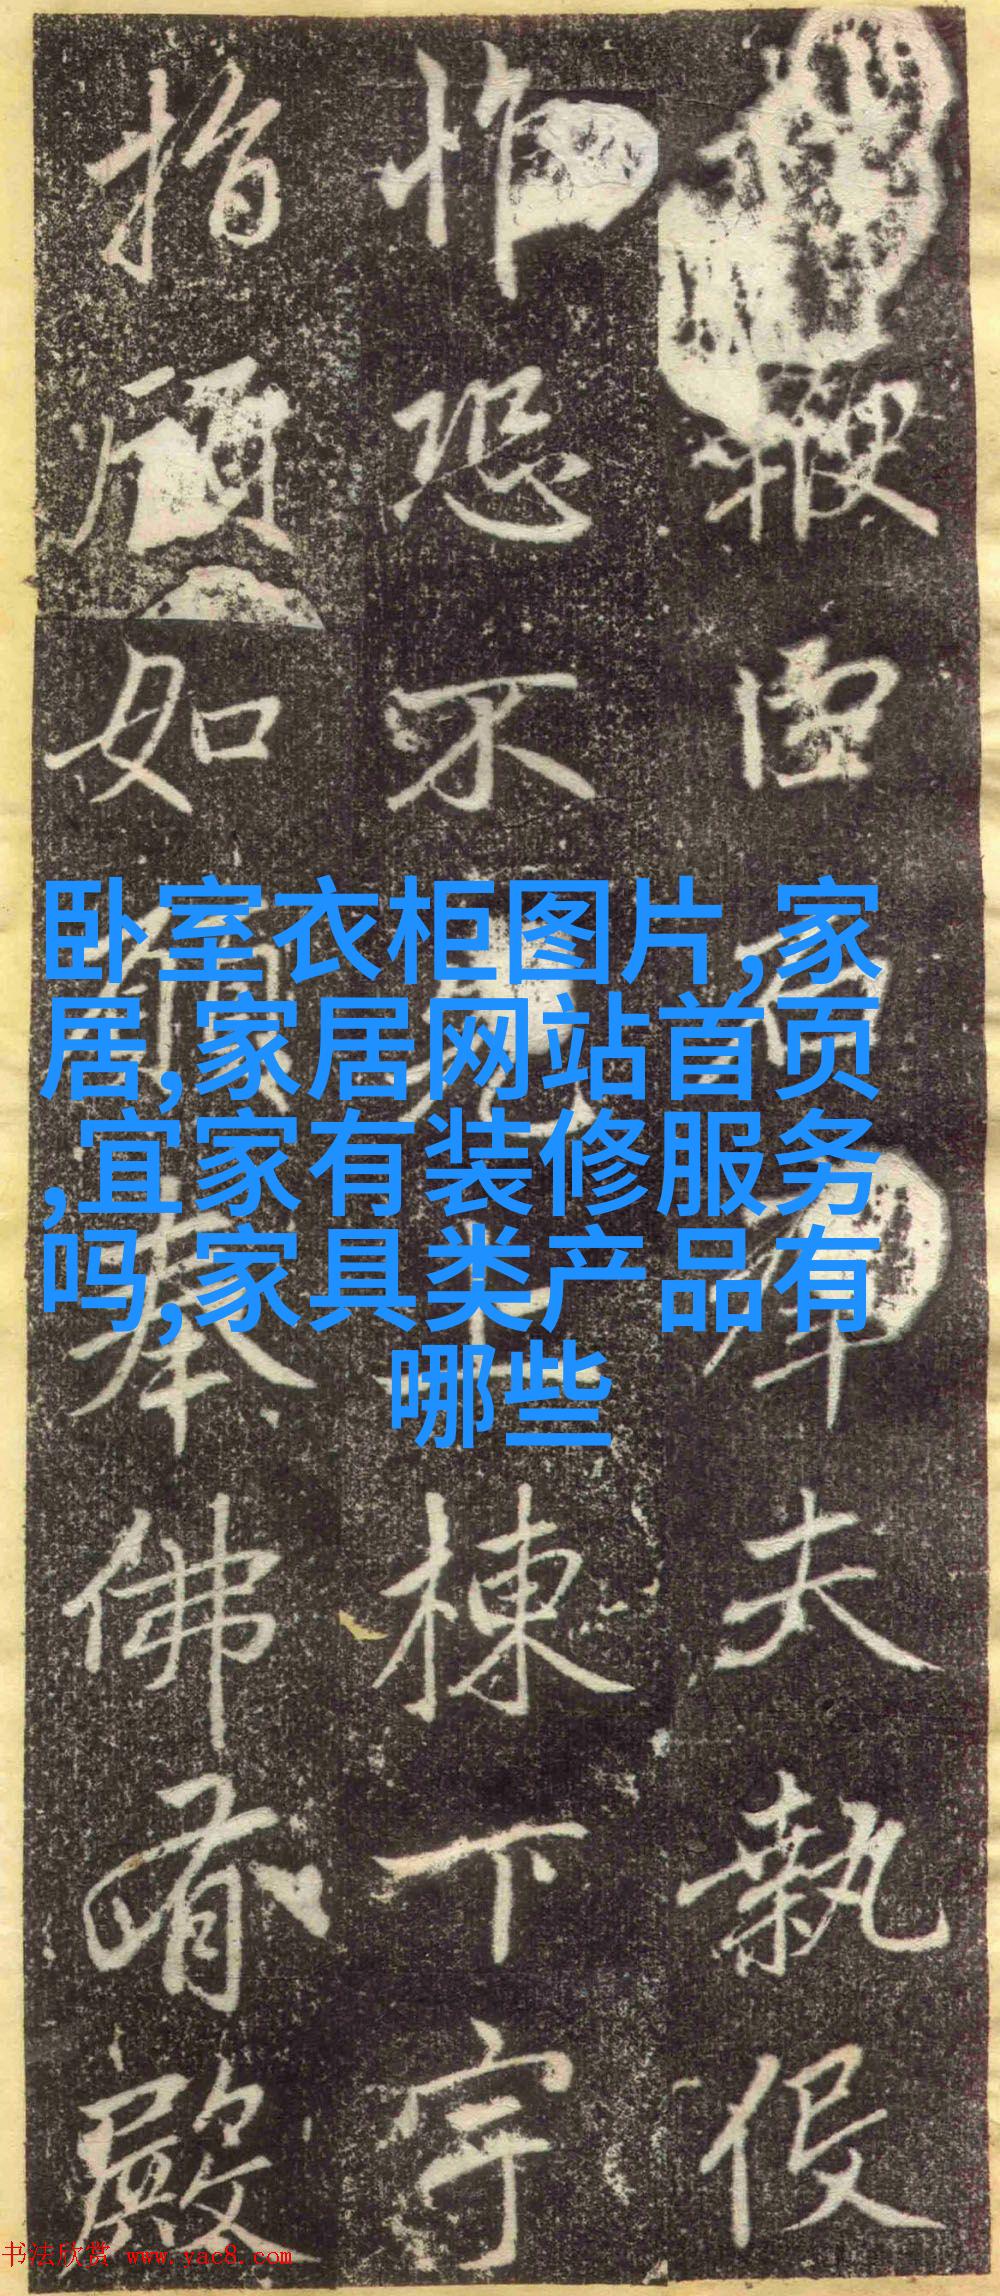 鞭夫執役
怍恐不上棟下宇
指顧如願奉佛有殿
卧室衣柜图片,家
居,家居网站首页
,宜家有装修服务
吗,家具类产品有
哪些
书法欣赏 www.yac8.com